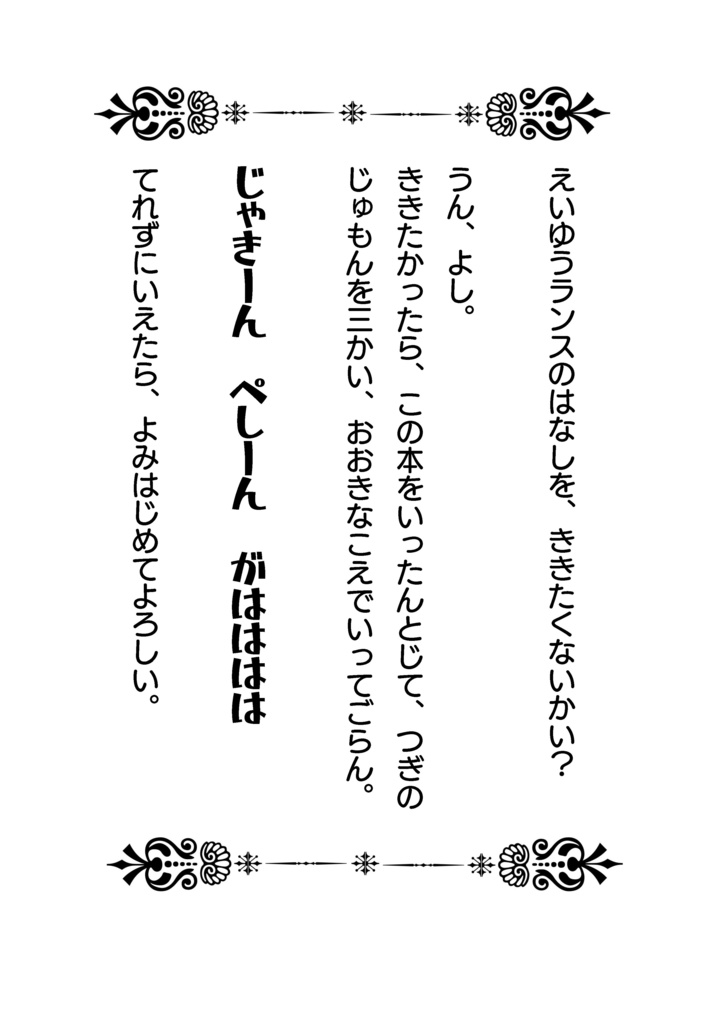 えいゆうランスのはなしを、ききたくないかい？
うん、よし。
ききたかったら、この本をいったんとじて、つぎの
じゅもんを三かい、おおきなこえでいってごらん。
じゃきーん　ぺしーん　がはははは
てれずにいえたら、よみはじめてよろしい。